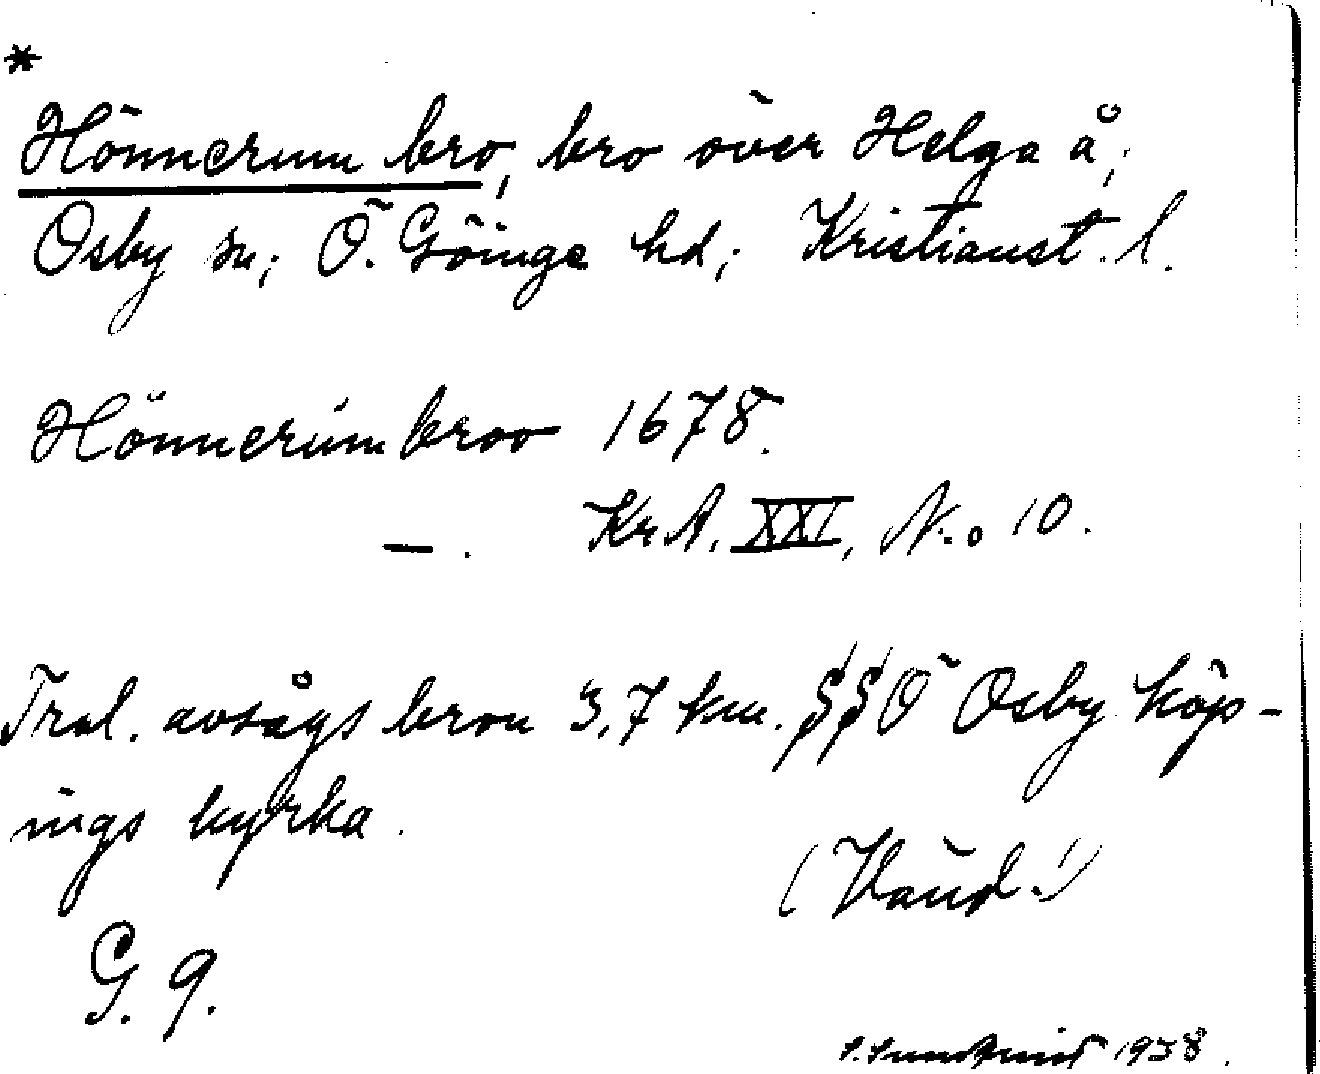 *
Hönnerum bro, bro över Helga å;
Osby sn; Ö. Göinge hd; Kristianst. l.
Hönnerüm broo 1678.
—. Kr.A. XXI, N:o 10.
Trol. avsågs bron 3,7 km. SSÖ Osby köp-
ings kyrka.
(Vänd!)
G. 9.
1938.